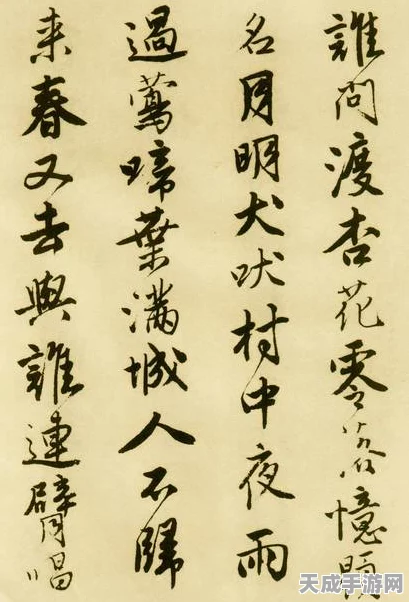 誰問渡杏花零落憶顏
名月明犬吠村中夜雨
過鶯啼葉滿城人不歸
来春又去與誰連臂唱
天成手游网